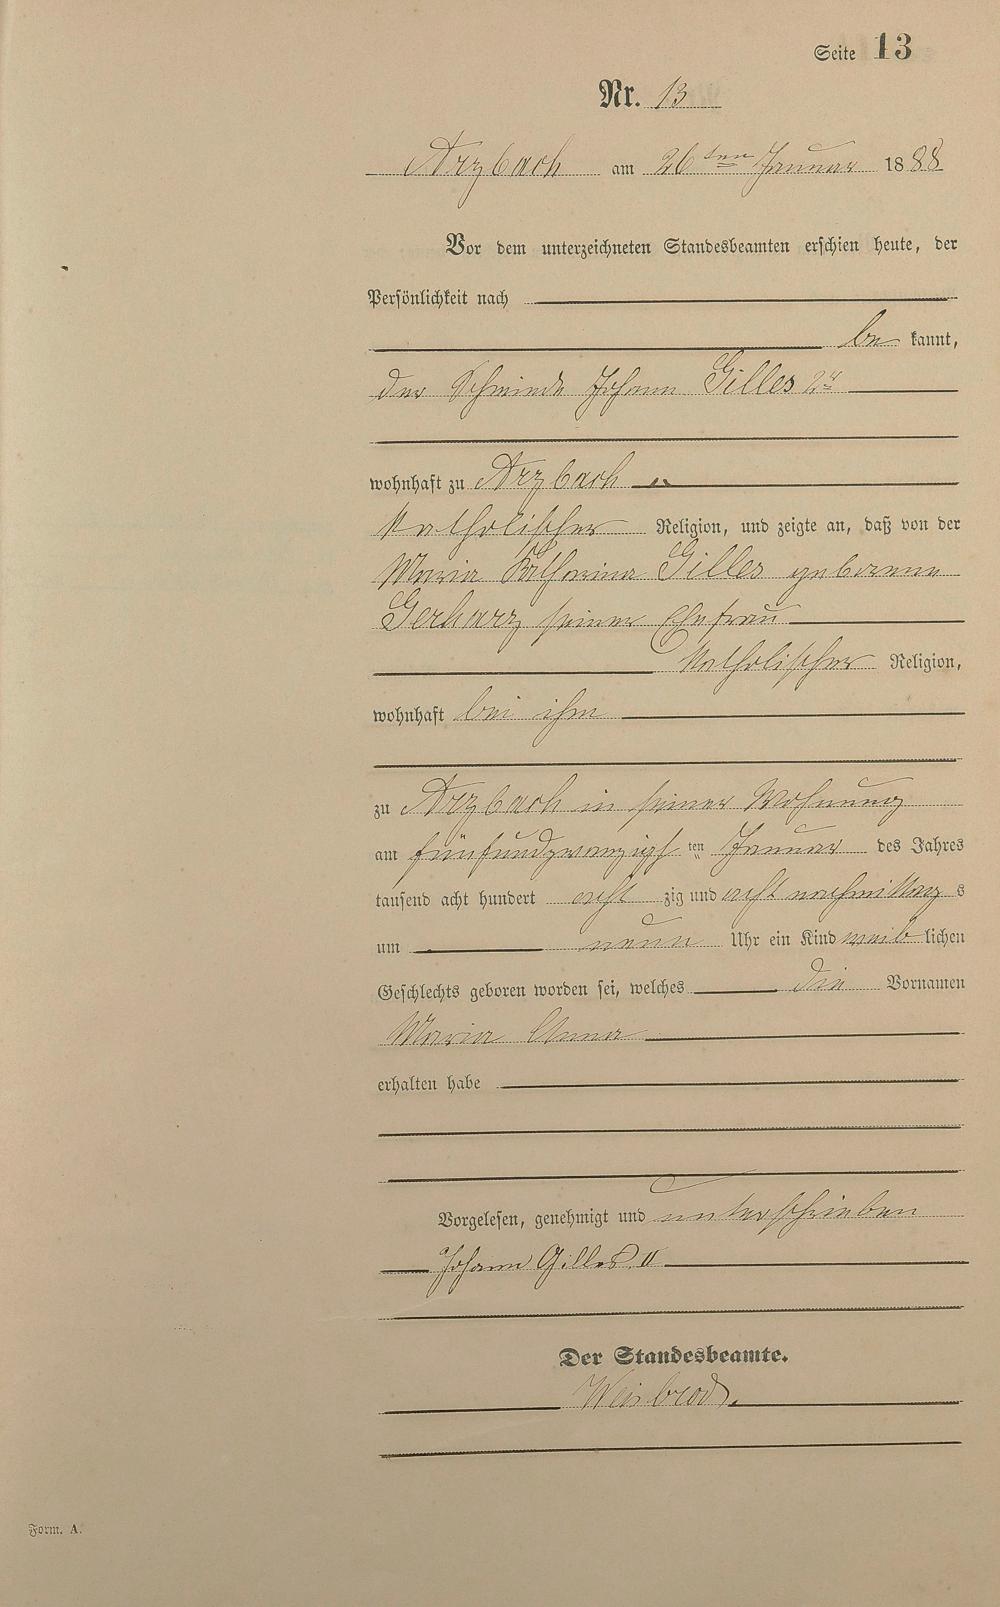 Seite 13
Nr. 13
Arzbach am 26ten Januar 1888
Vor dem unterzeichneten Standesbeamten erschien heute, der
Persönlichkeit nach
be kannt,
der Schmiede Johann Gilles 2r
wohnhaft zu Arzbach
katholischer Religion, und zeigte an, daß von der
Maria Katharina Gilles geborene
Gerharz seiner Ehefrau
katholischer Religion,
wohnhaft bei ihm
zu Arzbach in seiner Wohnung
am fünfundzwanzigsten Januar des Jahres
tausend acht hundert acht zig und acht nachmittag s
um neun Uhr ein Kind weib lichen
Geschlechts geboren worden sei, welches die Vornamen
Maria Anna
erhalten habe
Vorgelesen, genehmigt und unterschrieben
Johann Gilles II
Der Standesbeamte.
Weisbrod.
Form. A.